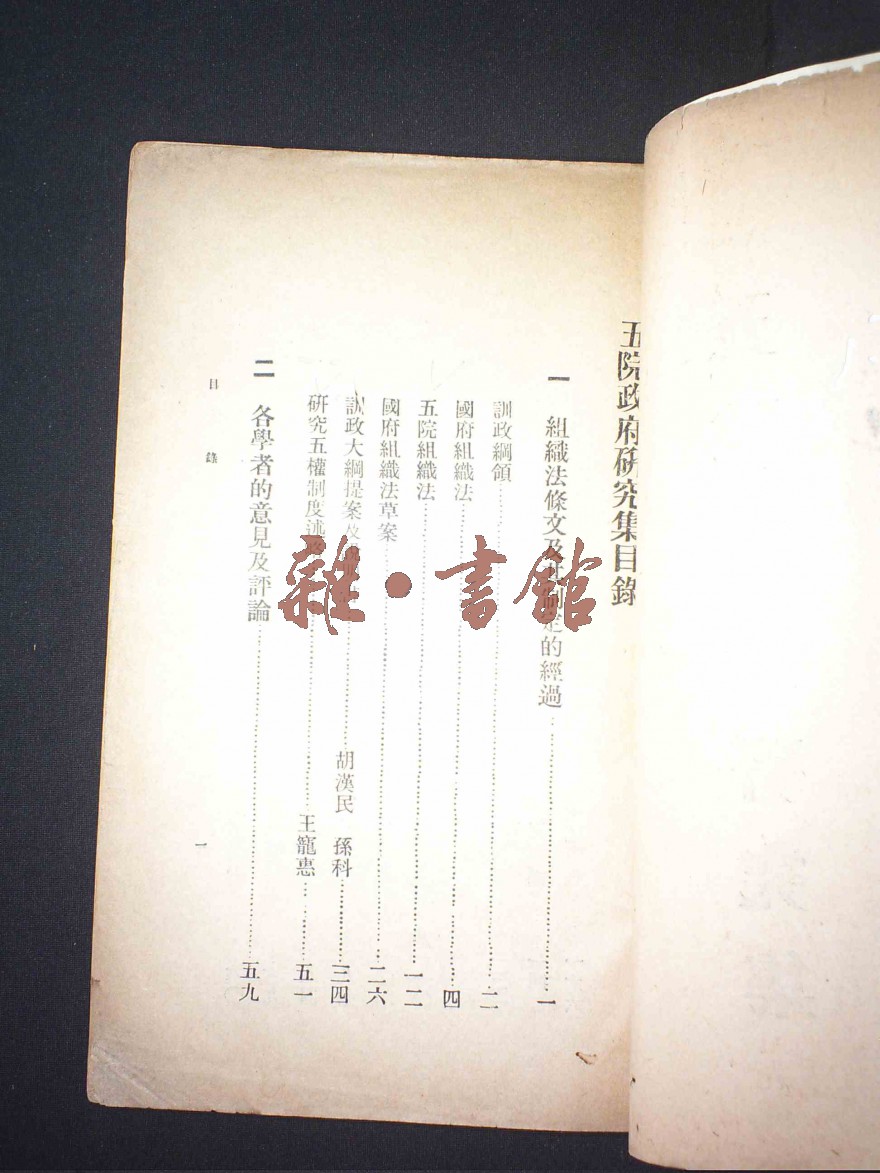 五院政府研究集目錄
一 組織法條文及其制定的經過……一
訓政綱領……二
國府組織法……四
五院組織法……一二
國府組織法草案……二六
訓政大綱提案及說明書……胡漢民 孫科……三四
研究五權制度述略……王寵惠……五一
二 各學者的意見及評論……五九
目錄
一
雜·書館